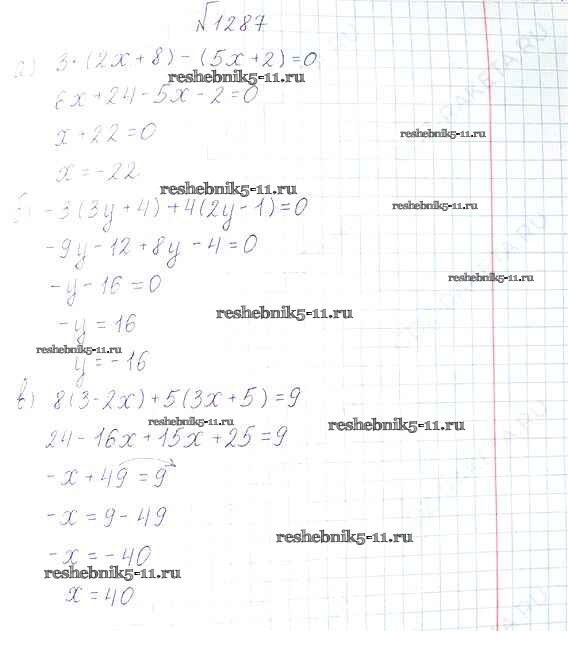 №1287
а) 3·(2x+8)-(5x+2)=0
reshebnik5-11.ru
6x+24-5x-2=0
x+22=0
reshebnik5-11.ru
x=-22
reshebnik5-11.ru
б) -3(3y+4)+4(2y-1)=0
reshebnik5-11.ru
-9y-12+8y-4=0
reshebnik5-11.ru
-y-16=0
reshebnik5-11.ru
-y=16
reshebnik5-11.ru
y=-16
в) 8(3-2x)+5(3x+5)=9
reshebnik5-11.ru
reshebnik5-11.ru
24-16x+15x+25=9
-x+49=9
-x=9-49
reshebnik5-11.ru
-x=-40
reshebnik5-11.ru
x=40